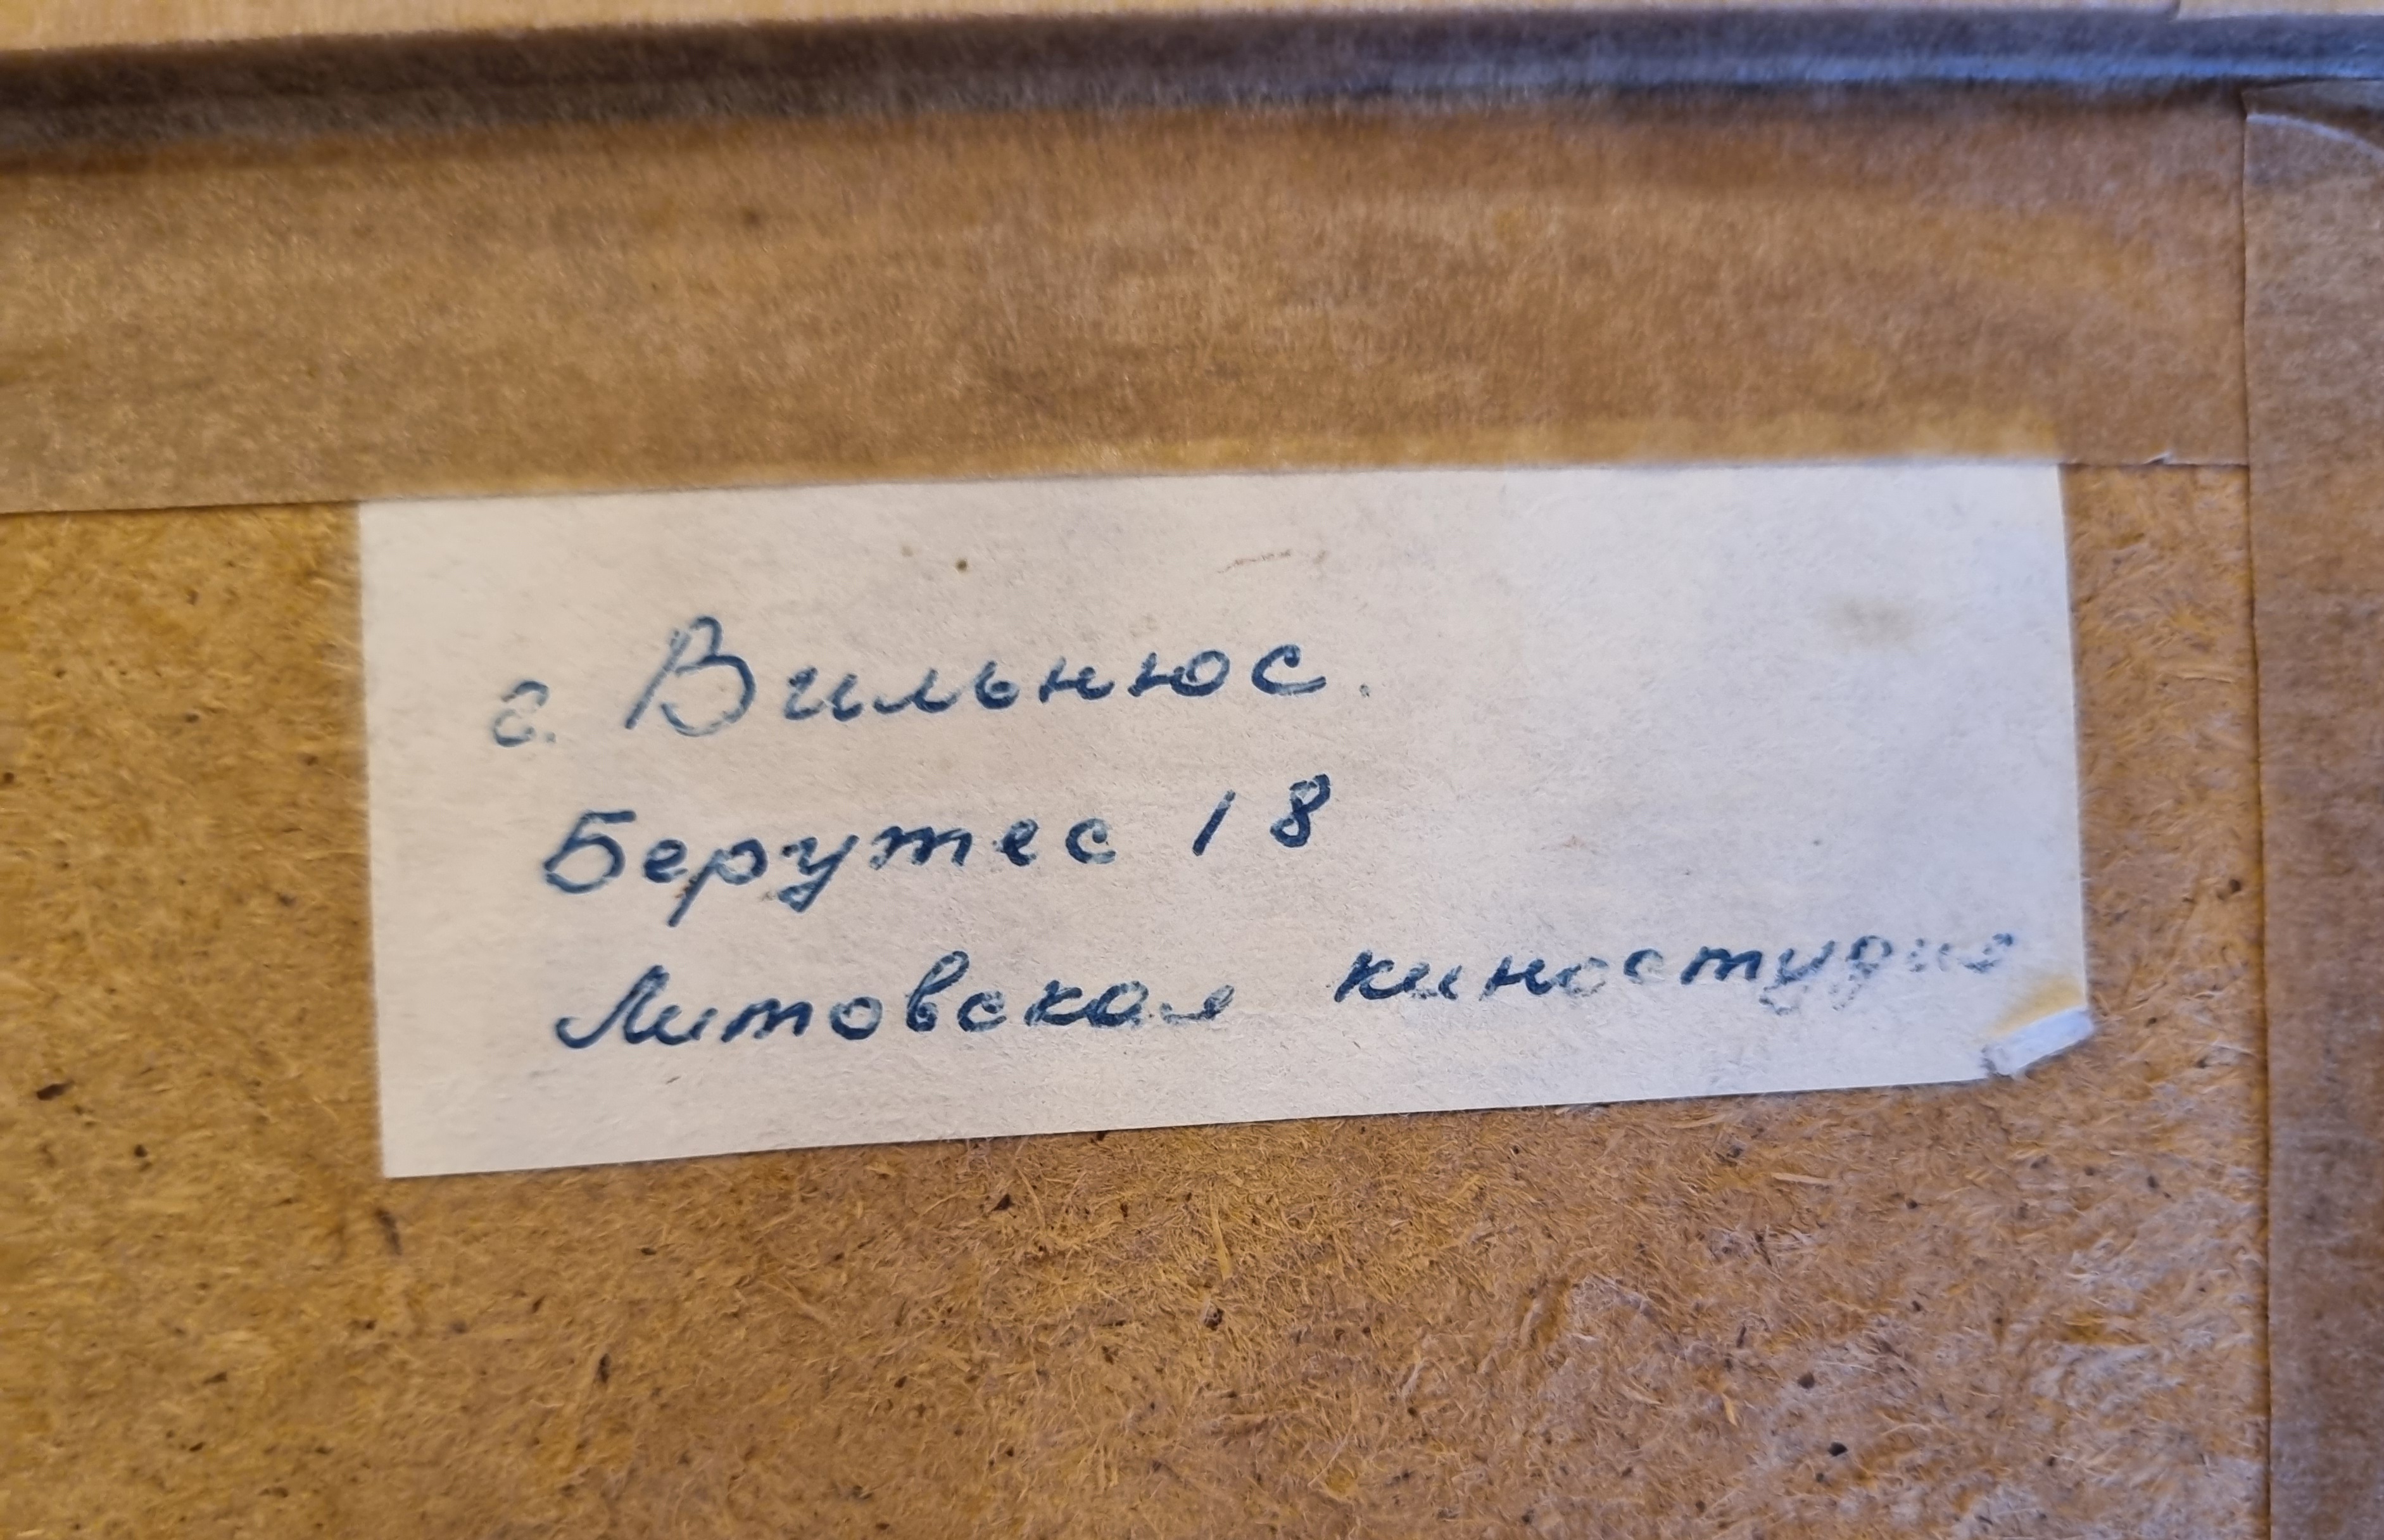 г. Вильнюс.
Берутес 18
Литовская киностудия